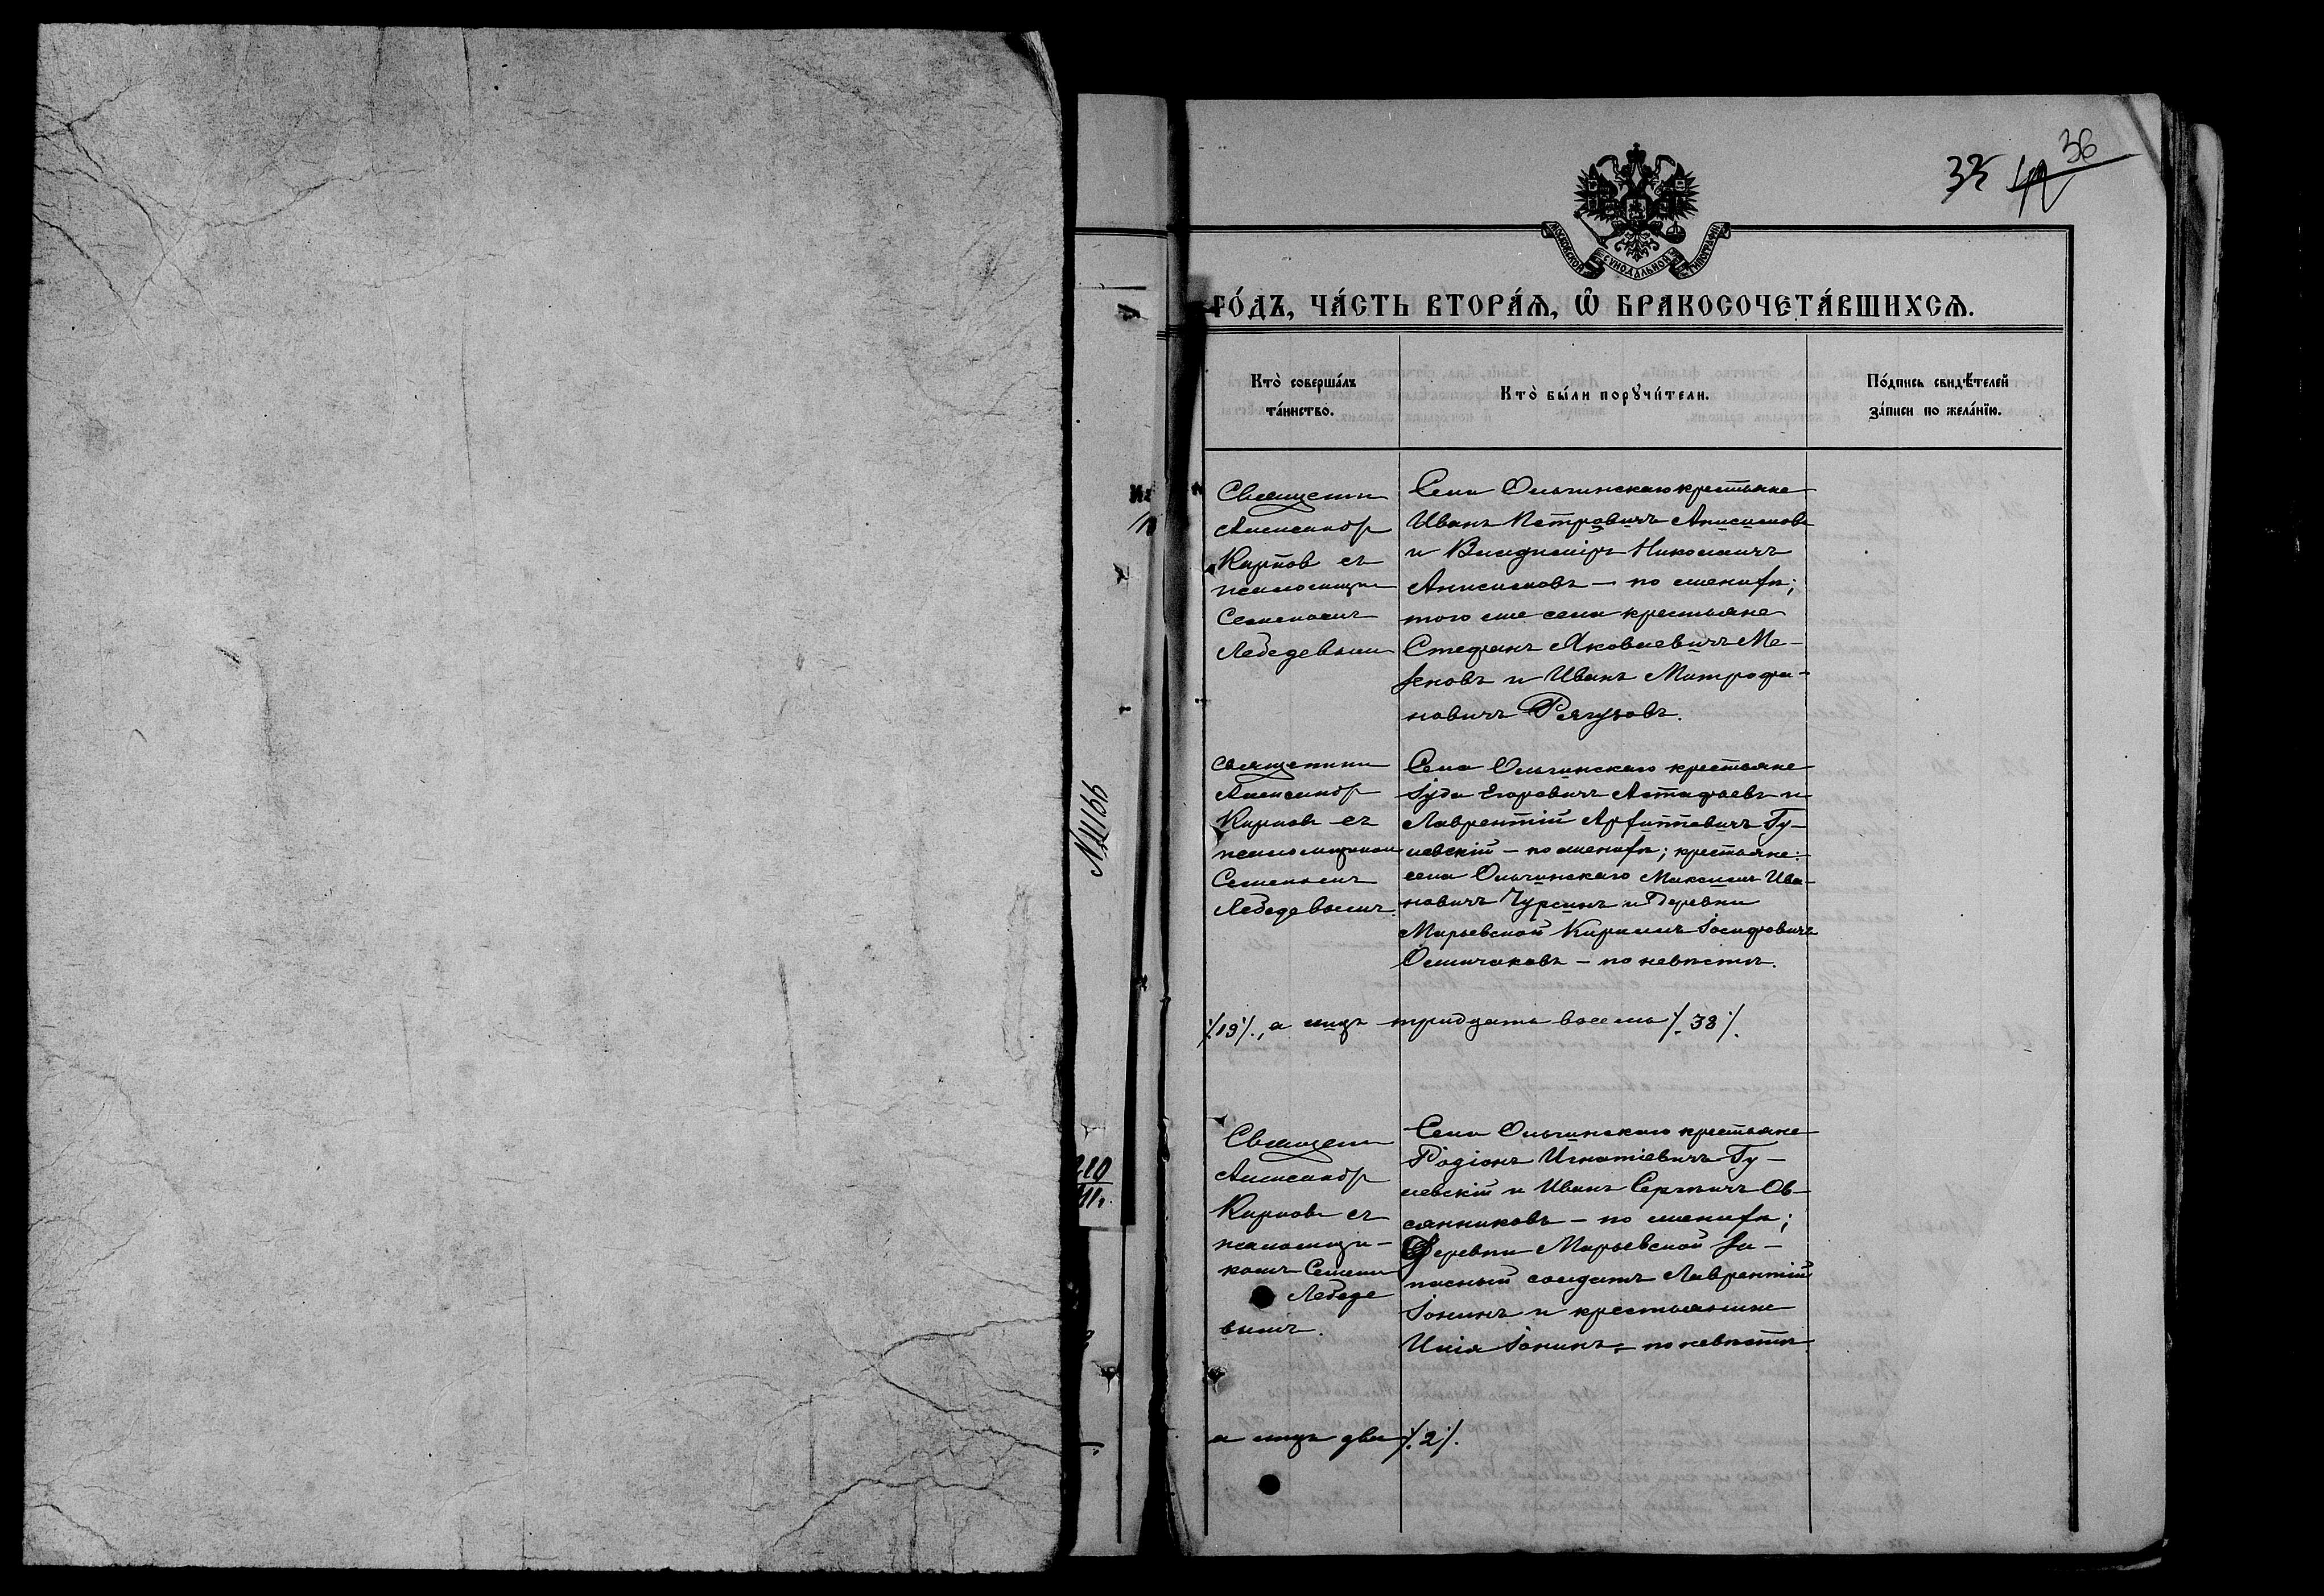 36
33
МОСКОВСКОЙ СУНОДАЛЬНОЙ ТИПОГРАФІИ
ГО́ДЪ, ЧА́СТЬ ВТОРА́Ѧ, Ѽ БРАКОСОЧЕТА́ВШИХСѦ.
Кто̀ соверша́лъ
та́инство.
Кто̀ бы́ли порꙋчи́тели.
По́дпись свидѣ́телей
за́писи по жела́нїю.
Священни
Александр
Карпов съ
псаломщи
Семеномъ
Лебедевымъ
Села Ольгинскаго крестьяне
Иванъ Петровичъ Анисимовъ
и Владиміръ Николаичъ
Анисимовъ — по женихѣ;
того же села крестьяне
Стефанъ Яковлевичъ Ме-
зеновъ и Иванъ Митрофа-
новичъ Рягузовъ.
Священник
Александр
Карповъ съ
псаломщиком
Семеномъ
Лебедевымъ.
Села Ольгинскаго крестьяне
Іуда Егоровичъ Астафьевъ и
Лаврентій Архиповичъ Гу-
левскій — по женихѣ; крестьяне:
села Ольгинскаго Максимъ Ива-
новичъ Чурсинъ и деревни
Марьевской Кириллъ Іосифовичъ
— по невѣстѣ.
19, а лицъ тридцать восемь 38.
Священ
Александр
Карповъ съ
псаломщи-
комъ Семены
Лебеде
вымъ.
Села Ольгинскаго крестьяне
Родіонъ Игнатіевичъ Гу-
левскій и Иванъ Сергѣичъ Ов-
сянниковъ — по женихѣ;
Деревни Марьевской за-
пасный солдатъ Лаврентій
Іонинъ и крестьянинъ
Илія Іонинъ — по невѣстѣ
а лицъ два 2.